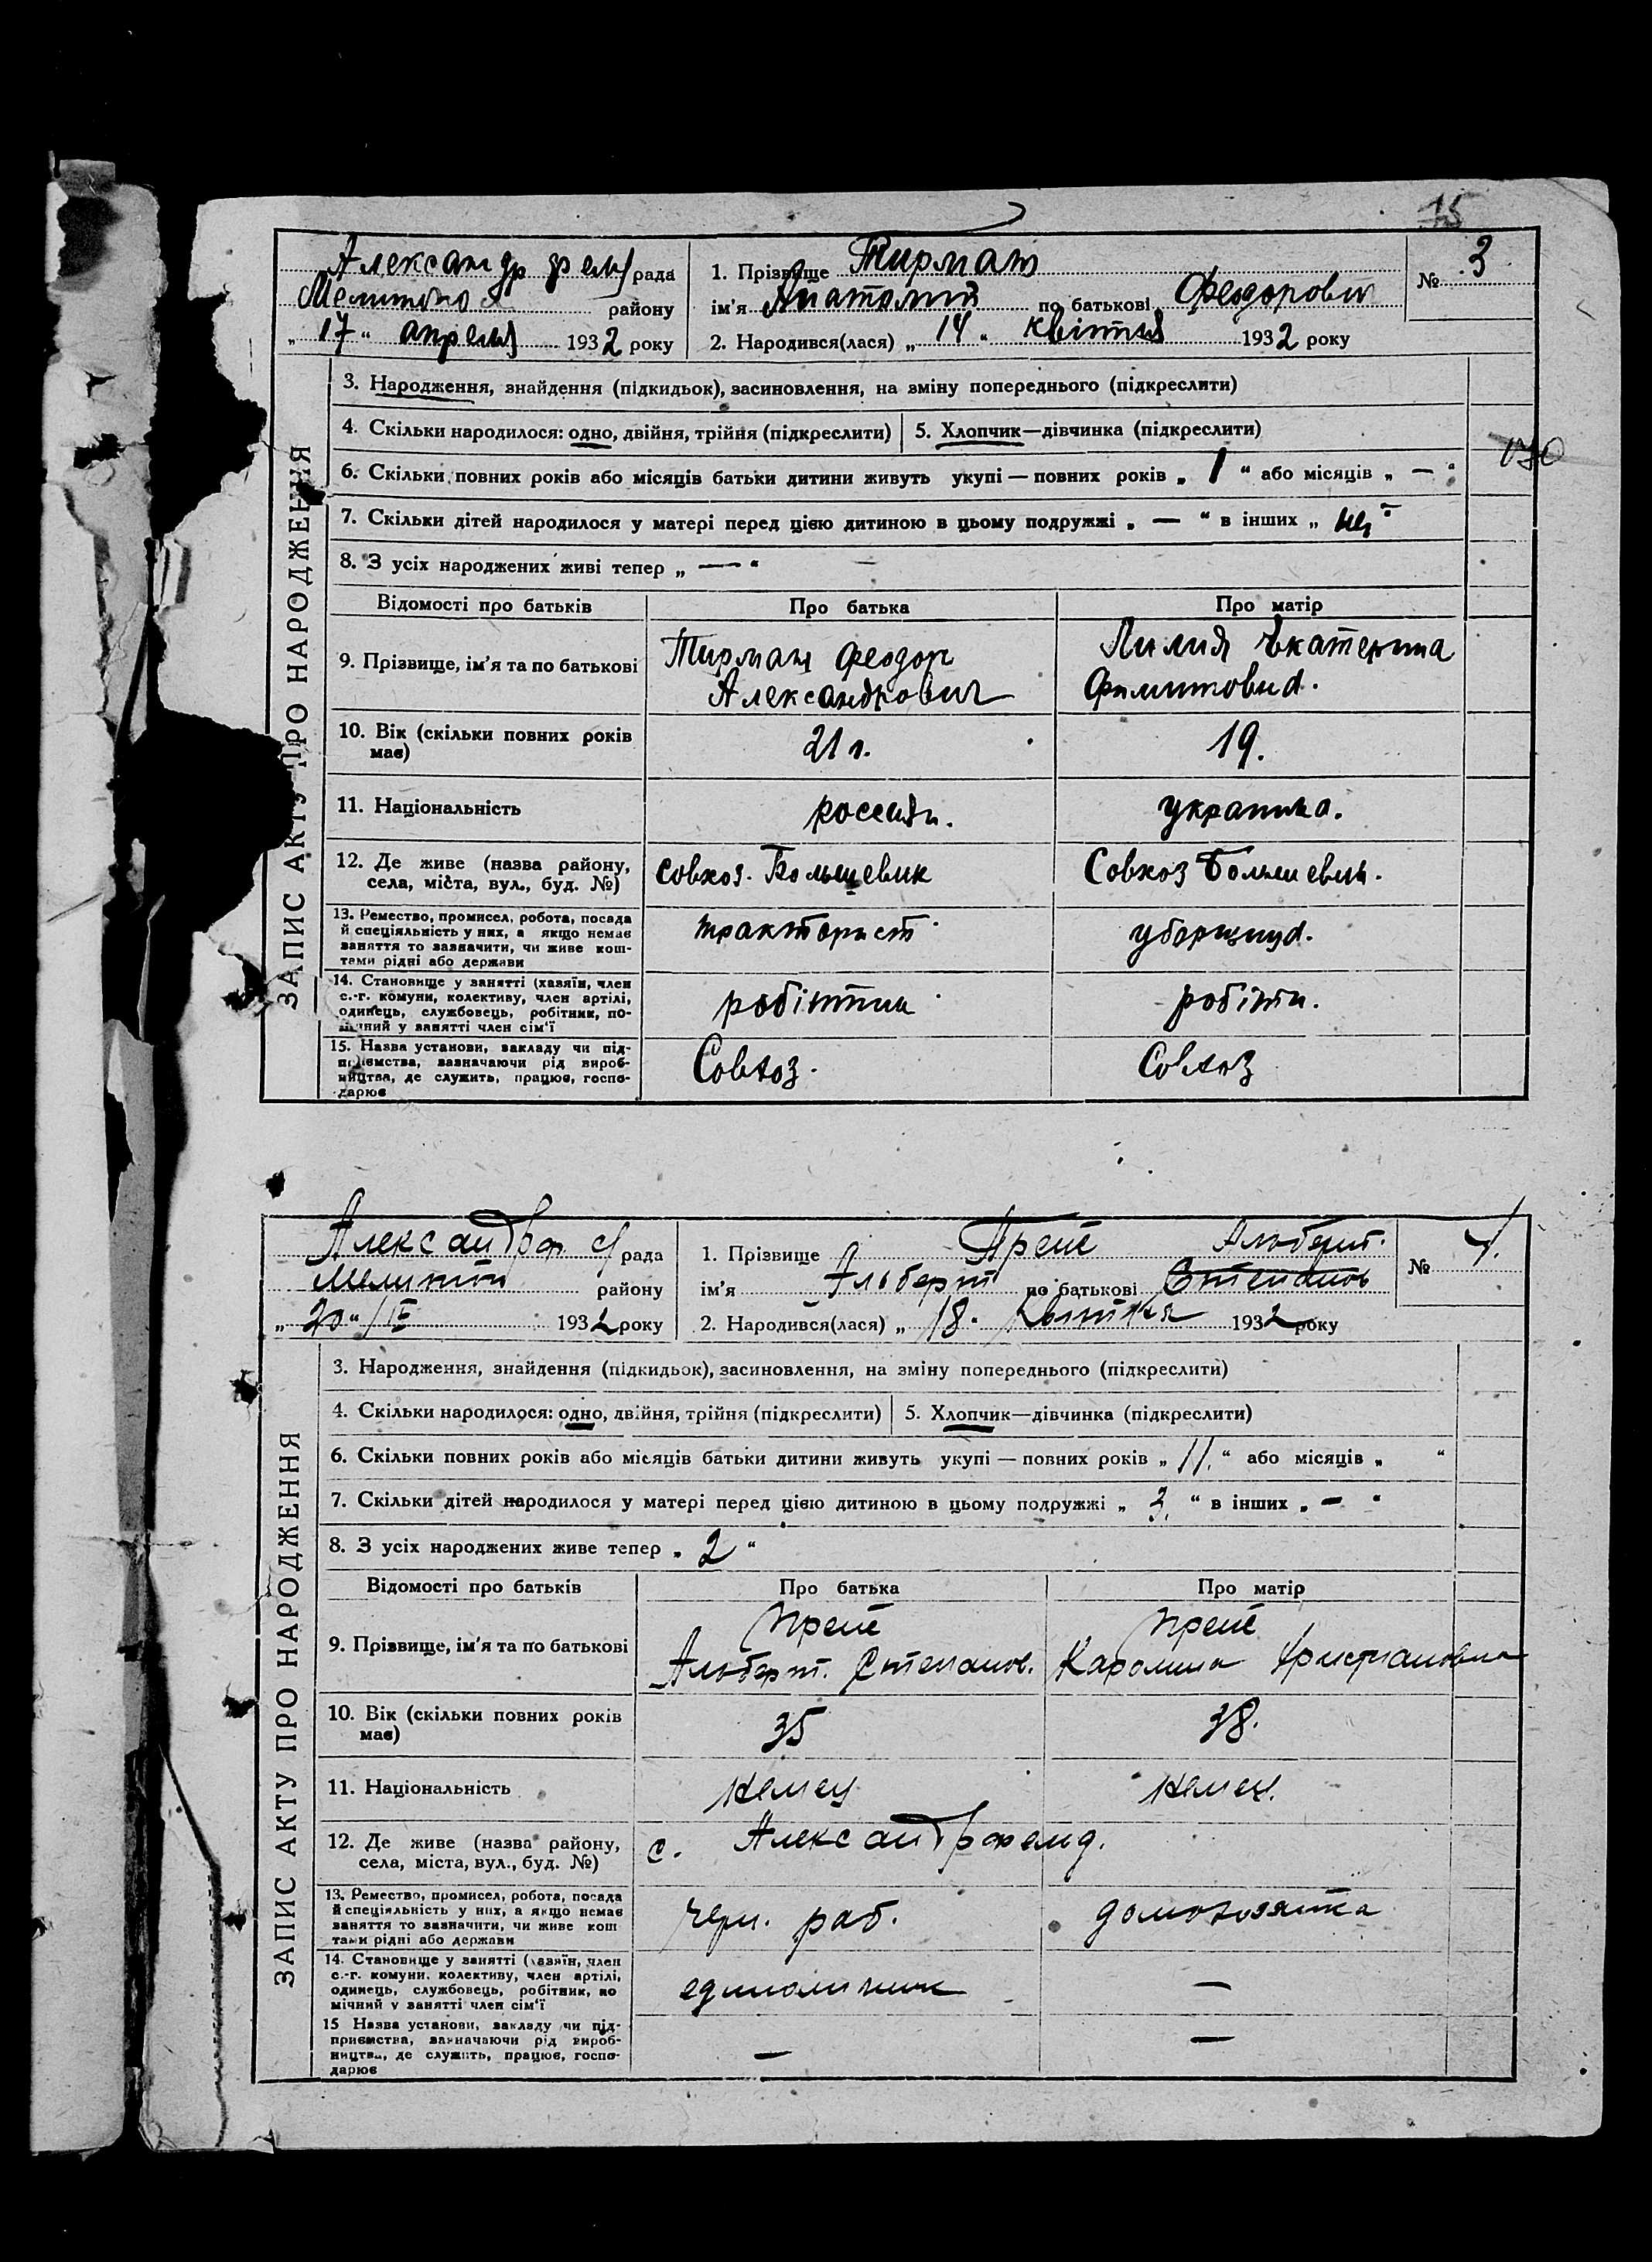 15
Александрфельд рада
Мелитопо району
„ 17 “ апреля 1932 року
1. Прізвище Тирман
ім'я Анатолий по батькові Феодорович
2. Народився(лася) „ 14 “ квітня 1932 року
№ 3
ЗАПИС АКТУ ПРО НАРОДЖЕННЯ
3. Народження, знайдення (підкидьок), засиновлення, на зміну попереднього (підкреслити)
4. Скільки народилося: одно, двійня, трійня (підкреслити) 5. Хлопчик—дівчинка (підкреслити)
6. Скільки повних років або місяців батьки дитини живуть укупі — повних років „ 1 “ або місяців „ — “
7. Скільки дітей народилося у матері перед цією дитиною в цьому подружжі „ — “ в інших „ “
8. З усіх народжених живі тепер „ — “
Відомості про батьків Про батька Про матір
9. Прізвище, ім'я та по батькові
Тирман Феодор
Александрович
Лилия Екатерина
10. Вік (скільки повних років
має)
21 г.
19.
11. Національність
россиян.
украинка.
12. Де живе (назва району,
села, міста, вул., буд. №)
совхоз. Большевик
Совхоз Большевик.
13. Ремество, промисел, робота, посада
й спеціяльність у них, а якщо немає
заняття то зазначити, чи живе кош-
тами рідні або держави
тракторист
уборщица.
14. Становище у занятті (хазяїн, член
с.-г. комуни, колективу, член артілі,
одинець, службовець, робітник, по-
мічний у занятті член сім'ї
робітник
робітн.
15. Назва установи, закладу чи під-
приємства, зазначаючи рід вироб-
ництва, де служить, працює, госпо-
дарює
Совхоз.
Совхоз
Александрф с/рада
Мелитоп району
„ 20 “ /IV 1932 року
1. Прізвище Прейс Альберт.
ім'я Альберт по батькові Степанов
2. Народився(лася) „ 18 “ Квитня 1932 року
№ 4.
ЗАПИС АКТУ ПРО НАРОДЖЕННЯ
3. Народження, знайдення (підкидьок), засиновлення, на зміну попереднього (підкреслити)
4. Скільки народилося: одно, двійня, трійня (підкреслити) 5. Хлопчик—дівчинка (підкреслити)
6. Скільки повних років або місяців батьки дитини живуть укупі — повних років „ 11. “ або місяців „ “
7. Скільки дітей народилося у матері перед цією дитиною в цьому подружжі „ 3. “ в інших „ — “
8. З усіх народжених живе тепер „ 2 “
Відомості про батьків Про батька Про матір
9. Прізвище, ім'я та по батькові
Прейс
Альберт. Степанов.
Прейс
Каролина Христиановна
10. Вік (скільки повних років
має)
35
38.
11. Національність
немец
немец.
12. Де живе (назва району,
села, міста, вул., буд. №)
с. Александрфельд.
13. Ремество, промисел, робота, посада
й спеціяльність у них, а якщо немає
заняття то зазначити, чи живе кош
тами рідні або держави
черн. раб.
домохозяйка
14. Становище у занятті (хазяїн, член
с.-г. комуни, колективу, член артілі,
одинець, службовець, робітник, по
мічний у занятті член сім'ї
единоличник
—
15 Назва установи, закладу чи під-
приємства, зазначаючи рід вироб-
ництва, де служить, працює, госпо-
дарює
—
—